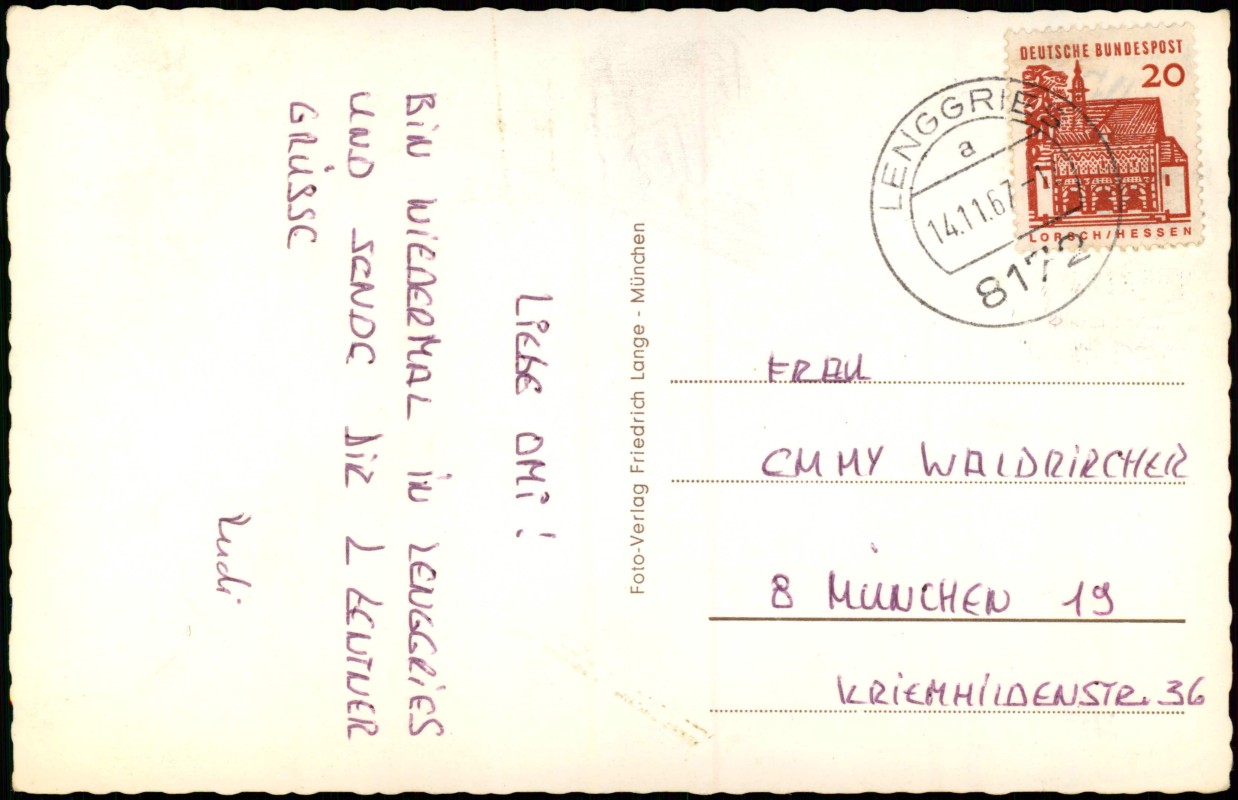 LIEBE OMI!
BIN WIEDERMAL IN LENGGRIES
UND SENDE DIR 1 ZENTNER
GRÜSSE
Rudi
Foto-Verlag Friedrich Lange - München
DEUTSCHE BUNDESPOST
20
LORSCH/HESSEN
LENGGRIES
a
14.11.67-1
8172
FRAU
EMMY WALDKIRCHER
8 MÜNCHEN 19
KRIEMHILDENSTR. 36